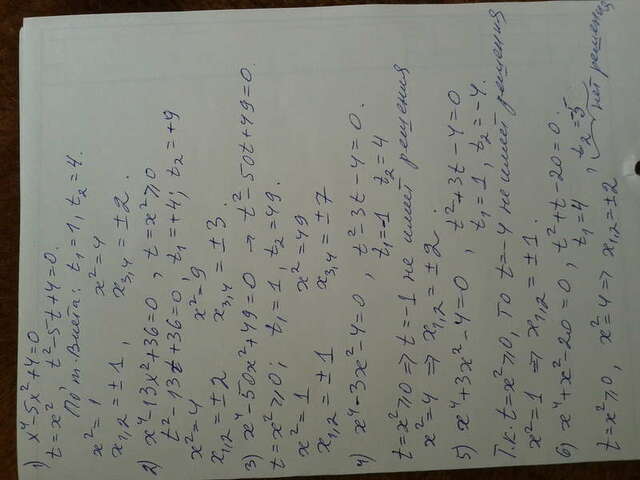 1) x⁴-5x²+4=0
t=x² t²-5t+4=0.
По т. Виета: t₁=1, t₂=4.
x²=1 x²=4
x₁,₂=±1, x₃,₄=±2.
2) x⁴-13x²+36=0, t=x²≥0
t²-13t+36=0, t₁=+4; t₂=+9
x²=4 x²=9
x₁,₂=±2 x₃,₄=±3.
3) x⁴-50x²+49=0 → t²-50t+49=0.
t=x²≥0; t₁=1, t₂=49.
x²=1 x²=49
x₁,₂=±1 x₃,₄=±7
4) x⁴-3x²-4=0, t²-3t-4=0.
t₁=-1 t₂=4
t=x²≥0 => t=-1 не имеет решения
x²=4 => x₁,₂=±2.
5) x⁴+3x²-4=0, t²+3t-4=0
t₁=1, t₂=-4.
Т.к. t=x²≥0, то t=-4 не имеет решения
x²=1 => x₁,₂=±1.
6) x⁴+x²-20=0, t²+t-20=0.
t₁=4, t₂=-5
t=x²≥0, x²=4 => x₁,₂=±2 нет решения